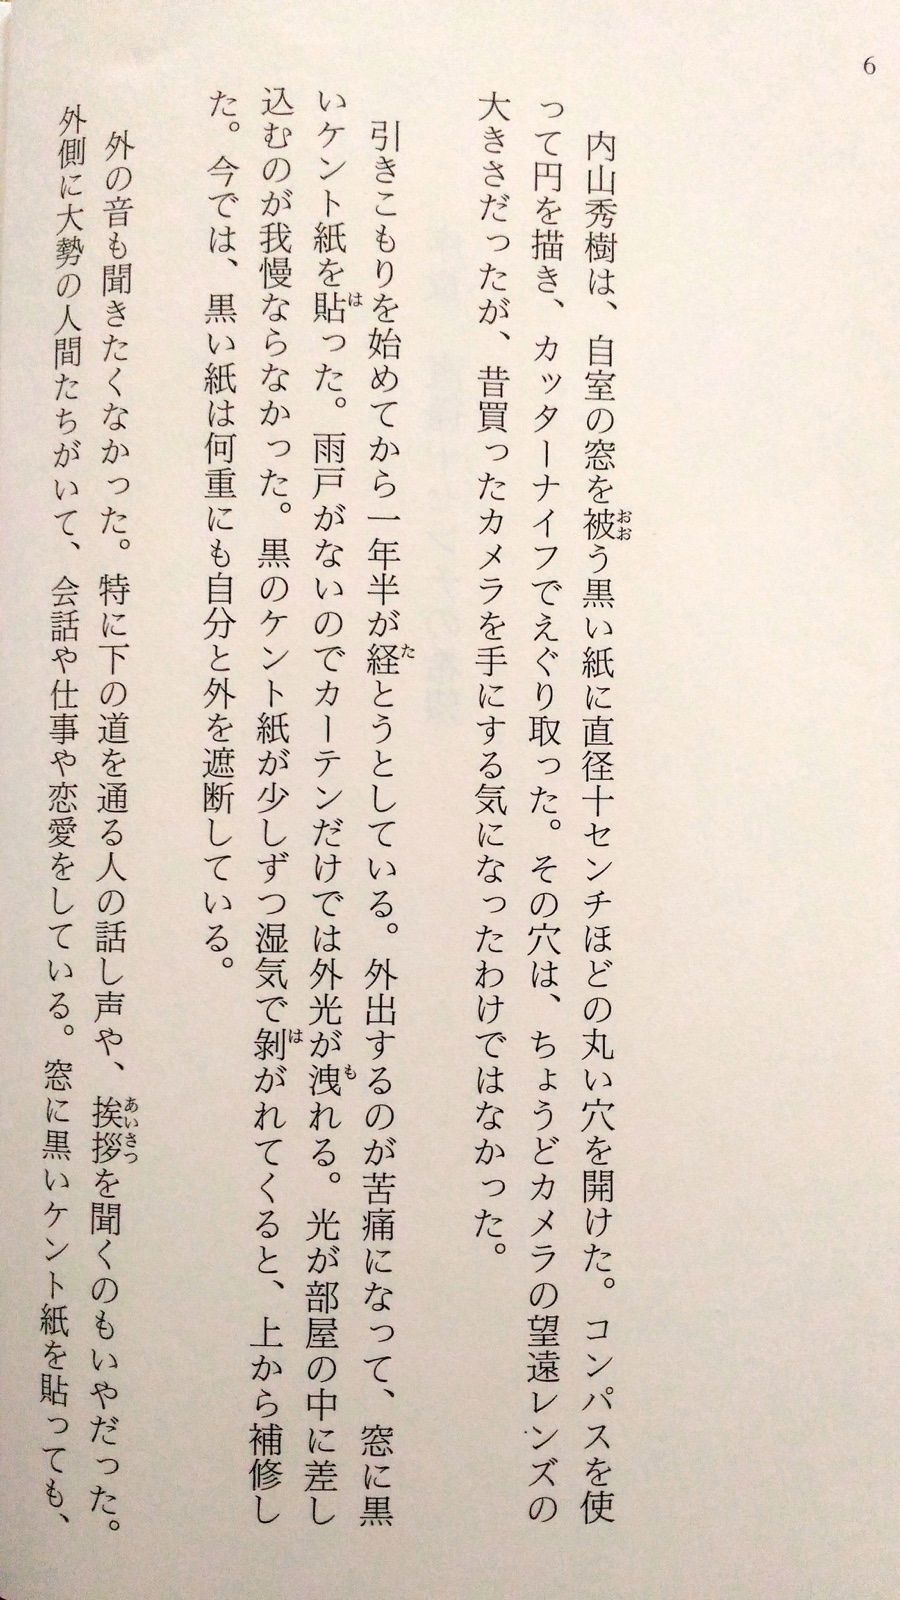 6
内山秀樹は、自室の窓を被う黒い紙に直径十センチほどの丸い穴を開けた。コンパスを使
って円を描き、カッターナイフでえぐり取った。その穴は、ちょうどカメラの望遠レンズの
大きさだったが、昔買ったカメラを手にする気になったわけではなかった。
引きこもりを始めてから一年半が経とうとしている。外出するのが苦痛になって、窓に黒
いケント紙を貼った。雨戸がないのでカーテンだけでは外光が洩れる。光が部屋の中に差し
込むのが我慢ならなかった。黒のケント紙が少しずつ湿気で剝がれてくると、上から補修し
た。今では、黒い紙は何重にも自分と外を遮断している。
外の音も聞きたくなかった。特に下の道を通る人の話し声や、挨拶を聞くのもいやだった。
外側に大勢の人間たちがいて、会話や仕事や恋愛をしている。窓に黒いケント紙を貼っても、